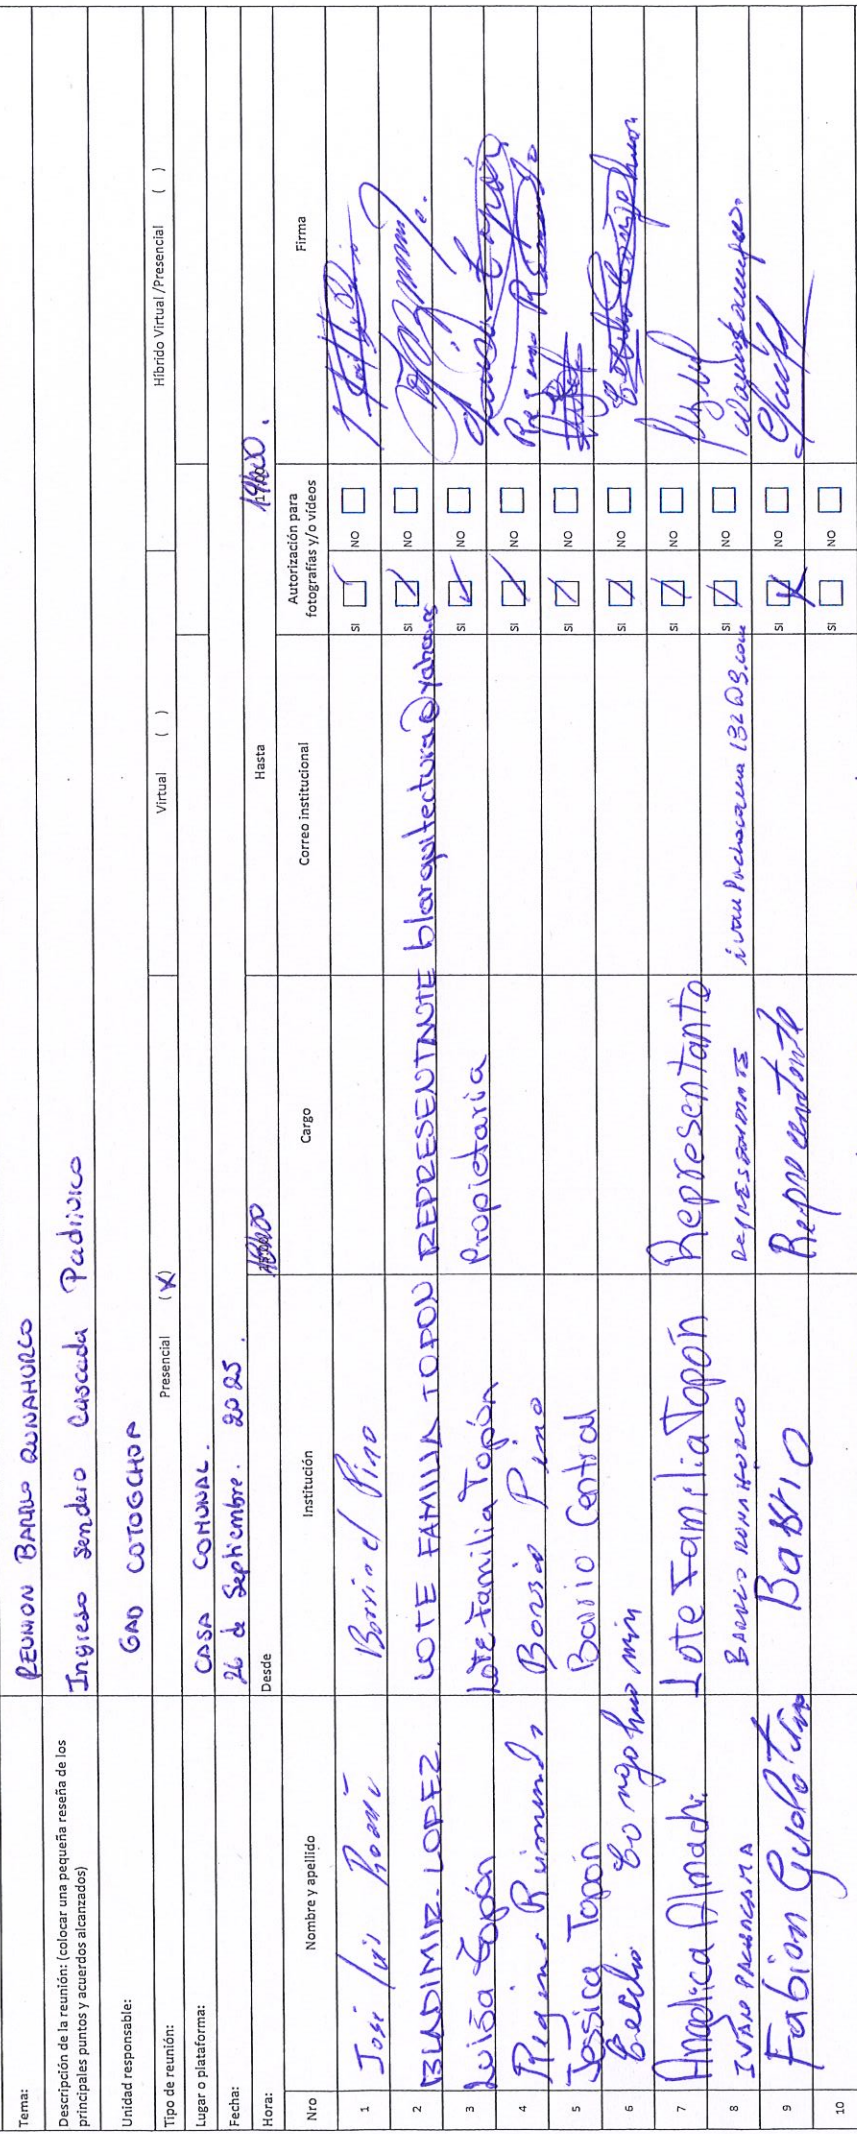 Tema: REUNION BARRIO RUNAHURCO
Descripción de la reunión: (colocar una pequeña reseña de los principales puntos y acuerdos alcanzados) Ingreso Sendero Cascada Padriurco
Unidad responsable: GAD COTOGCHOA
Tipo de reunión: Presencial (X) Virtual ( ) Híbrido Virtual /Presencial ( )
Lugar o plataforma: CASA COMUNAL.
Fecha: 26 de Septiembre. 2025.
Hora: Desde 18h00 Hasta 19h00.
Nro Nombre y apellido Institución Cargo Correo institucional Autorización para fotografías y/o vídeos Firma
1 José Luis Barrio el Pino SI NO
2 BLADIMIR LOPEZ. LOTE FAMILIA TOPON REPRESENTANTE blarquitectura@yahoo.es SI NO
3 Luisa Topón Lote Familia Topón Propietaria SI NO Luisa Topón
4 Regina Raimundo Barrio Pino SI NO Regina Raimundo
5 Jessica Topón Barrio Central SI NO
6 Cecilia SI NO
7 Angelica Almachi. Lote Familia Topón Representante SI NO
8 IVAN PACHACAMA BARRIO RUNAHURCO REPRESENTANTE SI NO
9 Fabian Barrio Representante SI NO
10 SI NO